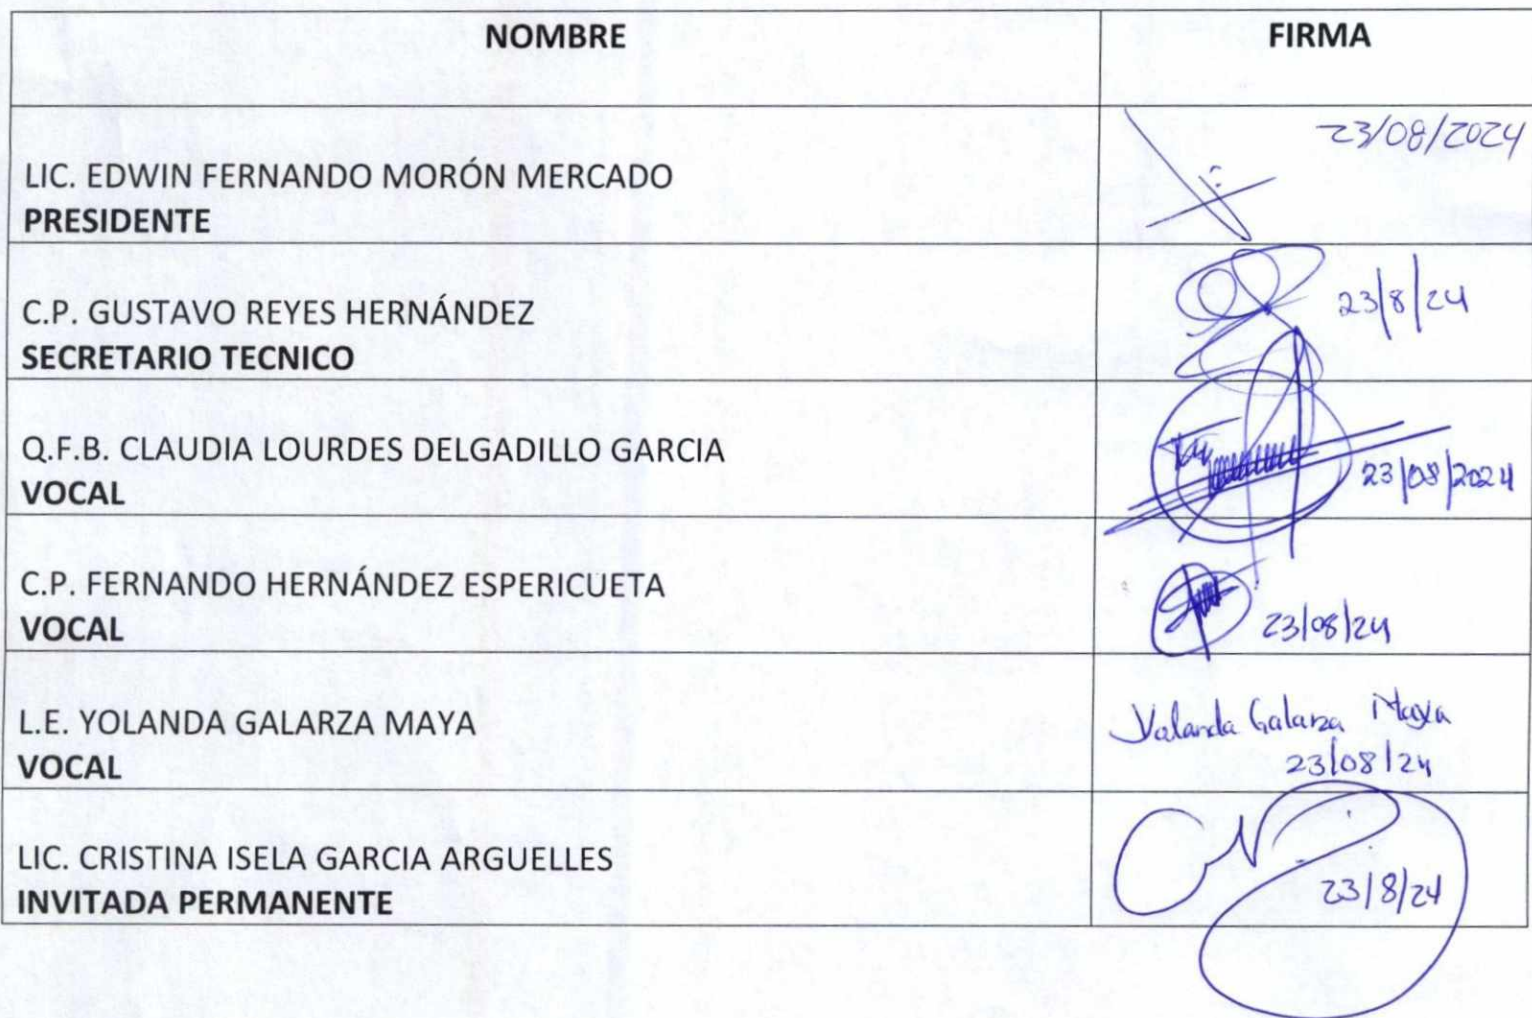 NOMBRE
FIRMA
LIC. EDWIN FERNANDO MORÓN MERCADO
PRESIDENTE
23/08/2024
C.P. GUSTAVO REYES HERNÁNDEZ
SECRETARIO TECNICO
23/8/24
Q.F.B. CLAUDIA LOURDES DELGADILLO GARCIA
VOCAL
23/08/2024
C.P. FERNANDO HERNÁNDEZ ESPERICUETA
VOCAL
23/08/24
L.E. YOLANDA GALARZA MAYA
VOCAL
Yolanda Galarza Maya
23/08/24
LIC. CRISTINA ISELA GARCIA ARGUELLES
INVITADA PERMANENTE
23/8/24